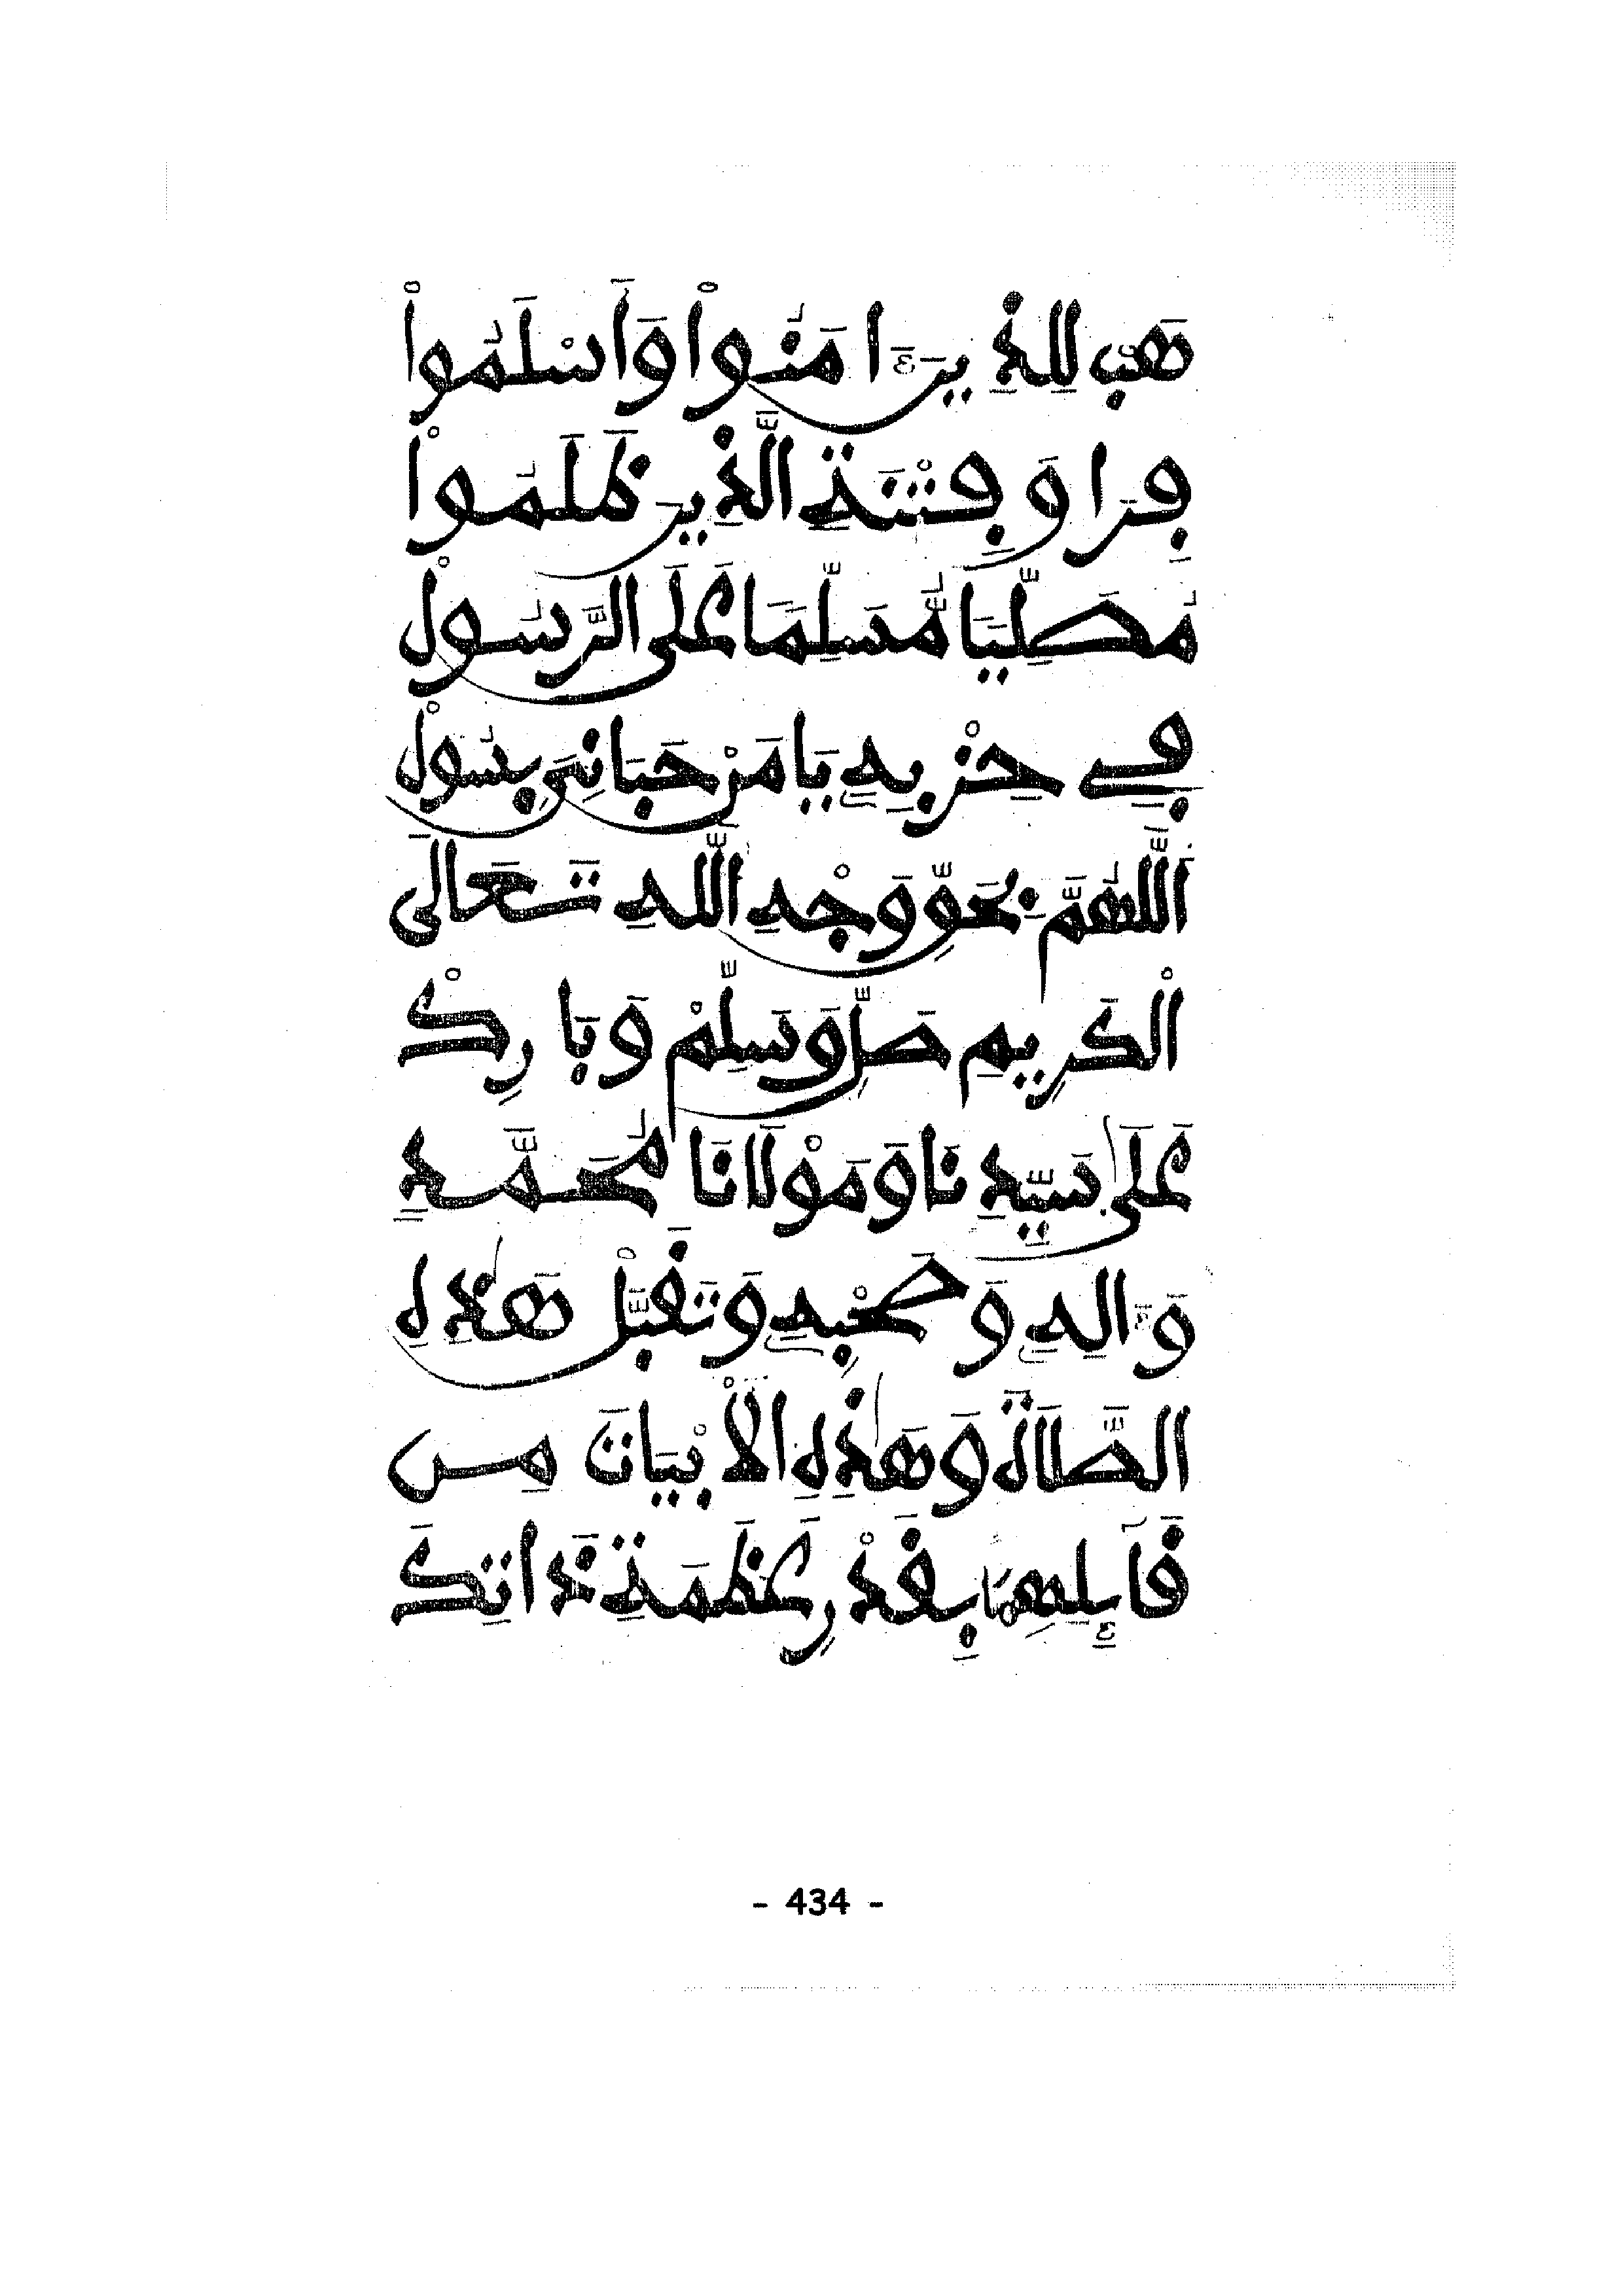 هَبْ لِلَّذِينَ ءَامَنُواْ وَأَسْلَمُواْ
فِرًا وَفِتْنَةِ الَّذِينَ ظَلَمُواْ
مُصَلِّيًا مُسَلِّمًا عَلَى الرَّسُولْ
فِي حِزْبِهِ يَا مَنْ حَبَانِيَ بِسُولْ
اللَّهُمَّ بِحَقِّ وَجْهِ اللَّهِ تَعَالَى
الْكَرِيمِ صَلِّ وَسَلِّمْ وَبَارِكْ
عَلَى سَيِّدِنَا وَمَوْلَانَا مُحَمَّدٍ
وَءَالِهِ وَصَحْبِهِ وَتَقَبَّلْ هَذِهِ
الصَّلَاةَ وَهَذِهِ الْأَبْيَاتَ مِن
قَآئِلِهَا بِقَدْرِ عَظَمَةِ ذَاتِكَ
- 434 -